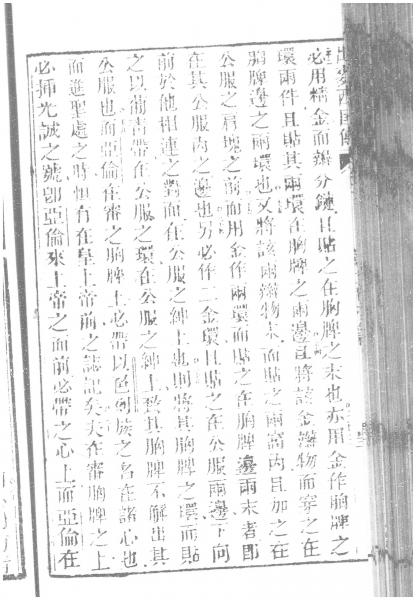 必用精金而辮分鏈且貼之在胸牌之末也亦用金作胸牌之
環兩件且貼其兩環在胸牌之兩邊且將該金辮物而穿之在
胸牌邊之兩環也又將該兩辮物末而貼之兩窩內且加之在
公服之肩塊之前面用金作兩環而貼之在胸牌邊兩末者即
在其公服內之邊也另必作二金環且貼之在公服兩邊下向
前於他相連之對面在公服之紳上也則將其胸牌之環而貼
之以葡青帶在公服之環在公服之紳上致其胸牌不解出其
公服也而亞倫在審之胸牌上必帶以色列族之名在諸心也
而進聖處之時恒有在皇上帝前之誌記矣夫在審胸牌之上
必揷光誠之號即亞倫來上帝之面前必帶之心上而亞倫在